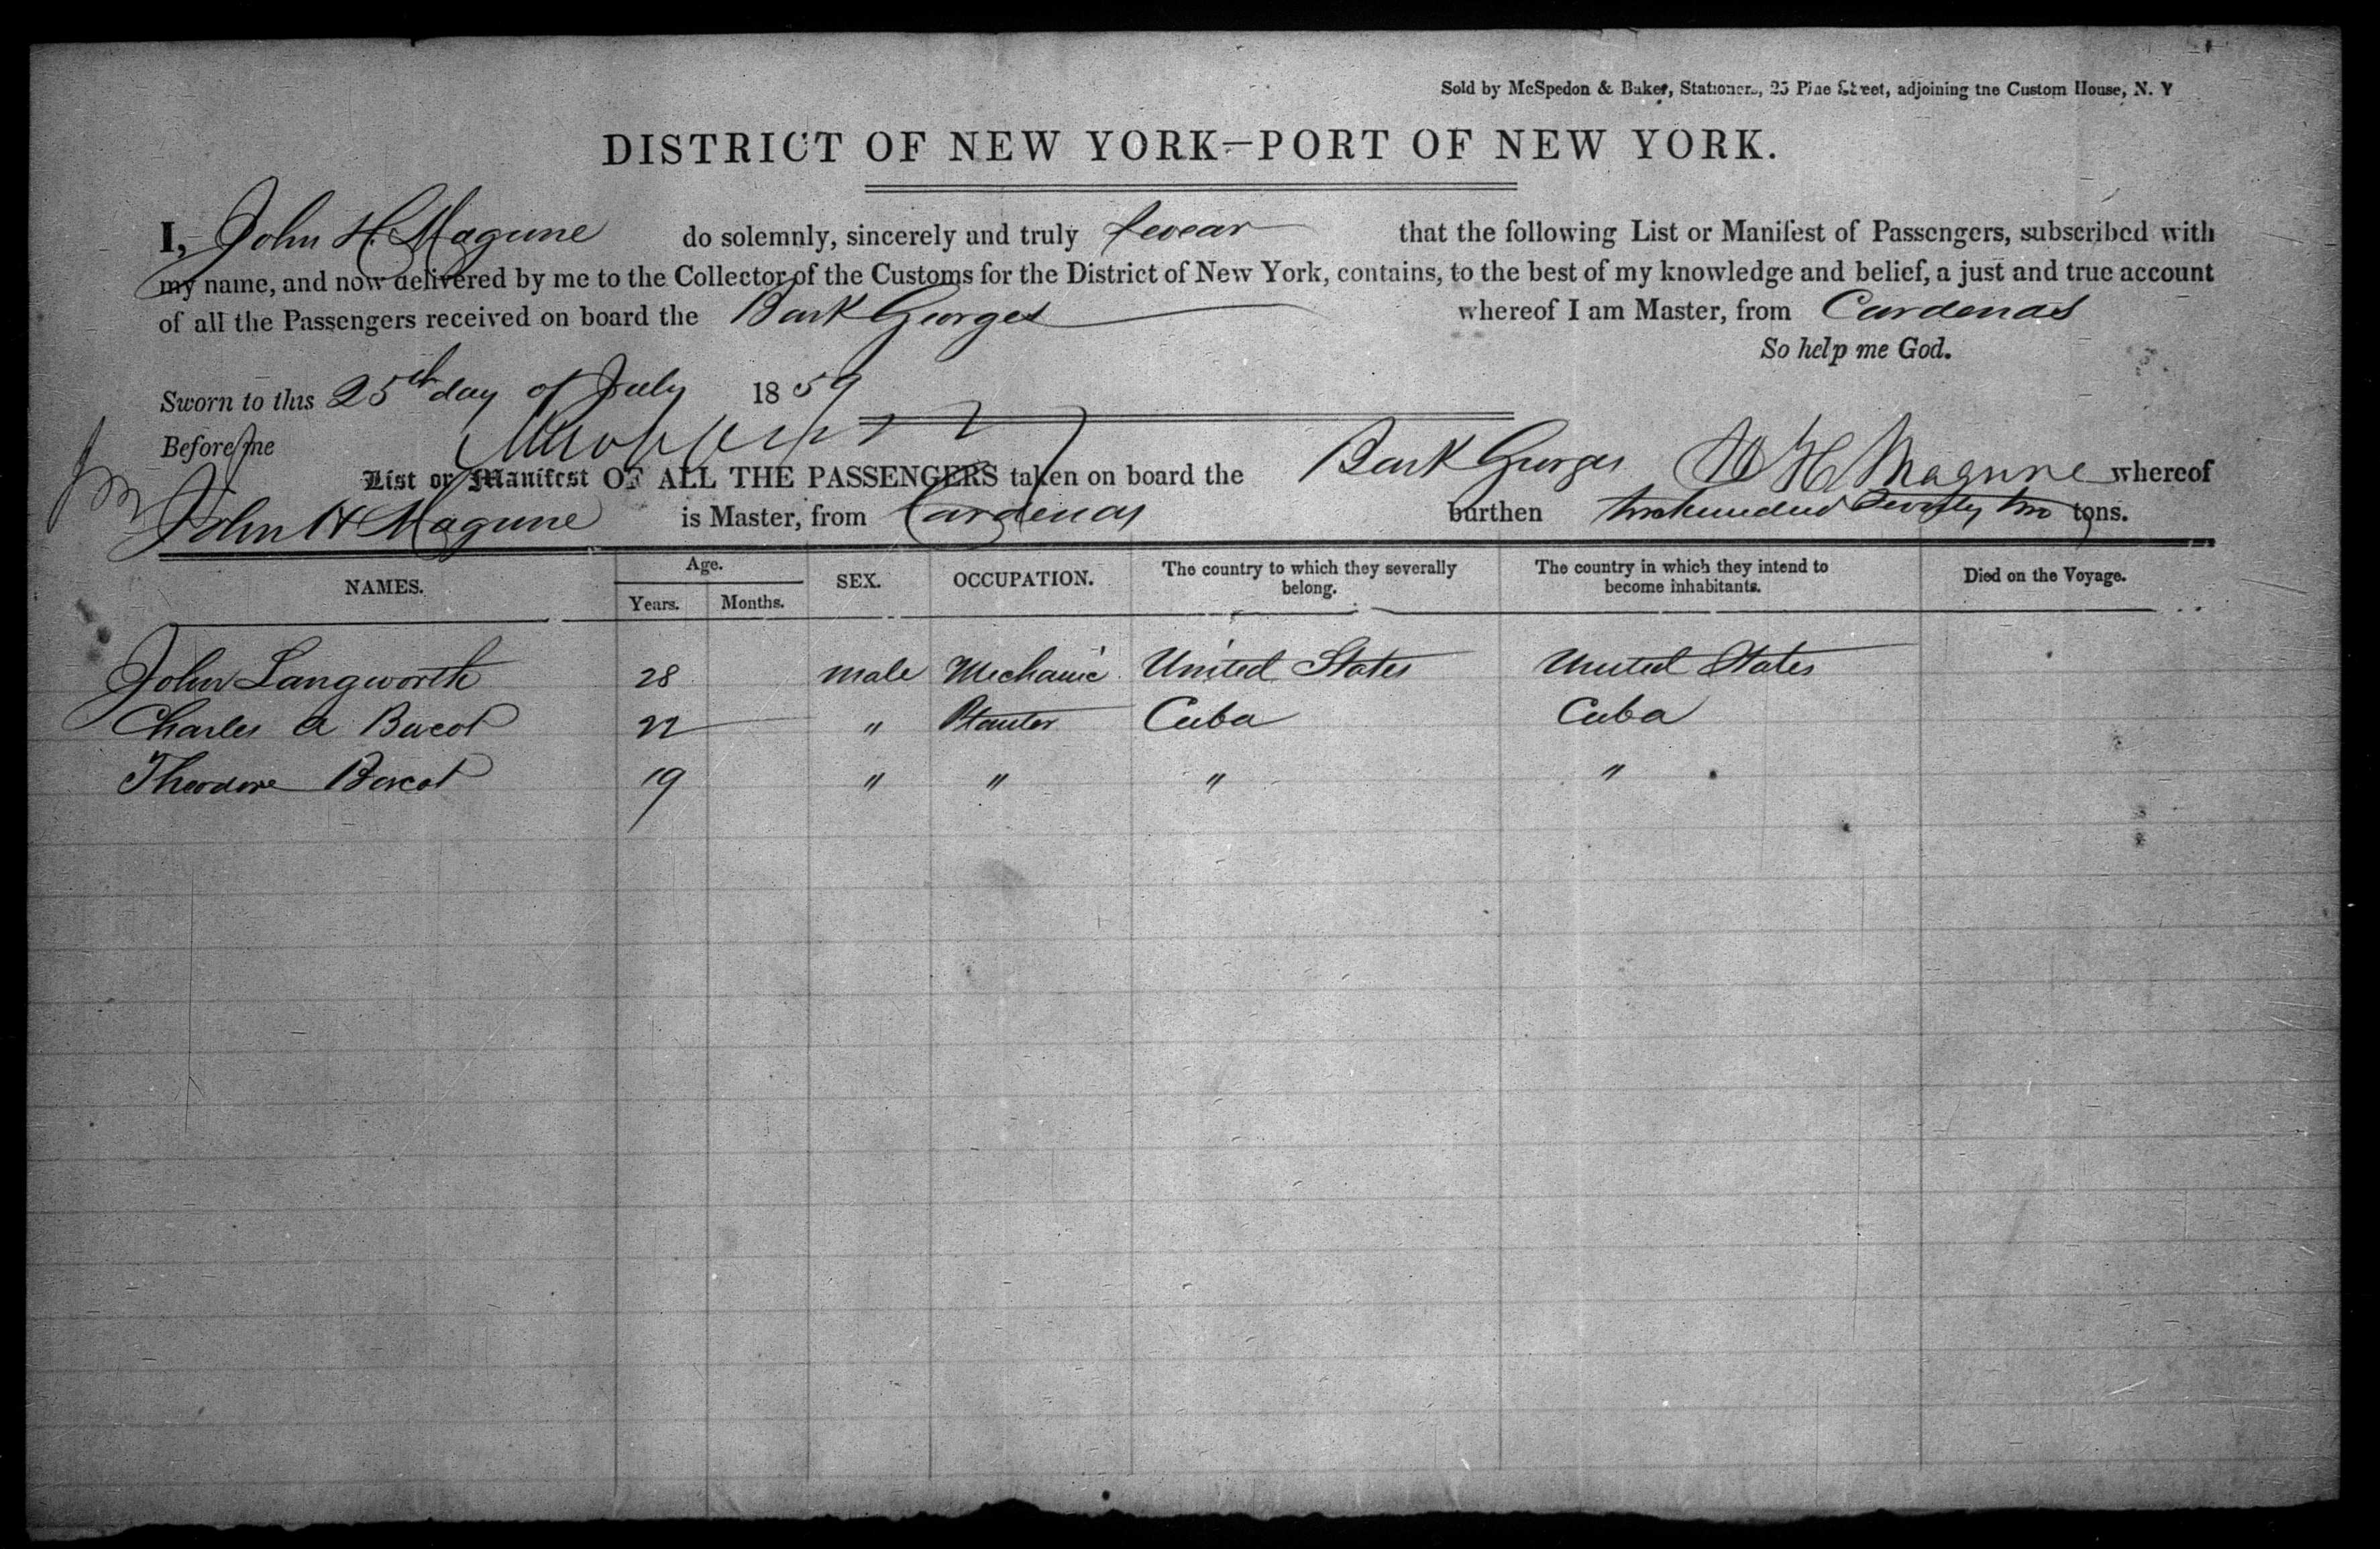 Sold by McSpedon & Baker, Stationers, 25 Pine Street, adjoining the Custom House, N. Y
DISTRICT OF NEW YORK—PORT OF NEW YORK.
I, John H. Magune do solemnly, sincerely and truly swear that the following List or Manifest of Passengers, subscribed with
my name, and now delivered by me to the Collector of the Customs for the District of New York, contains, to the best of my knowledge and belief, a just and true account
of all the Passengers received on board the Bark Georges whereof I am Master, from Cardenas
So help me God.
Sworn to this 25th day of July 1859
Before me
List or Manifest OF ALL THE PASSENGERS taken on board the Bark Georges H Magune whereof
John H Magune is Master, from Cardenas burthen two hundred Seventy two tons.
NAMES. Age. Years. Months. SEX. OCCUPATION. The country to which they severally belong. The country in which they intend to become inhabitants. Died on the Voyage.
John Langworth 28 male Mechanic United States United States
Charles A Bacot 22 " Planter Cuba Cuba
Theodore Bacot 19 " " " "